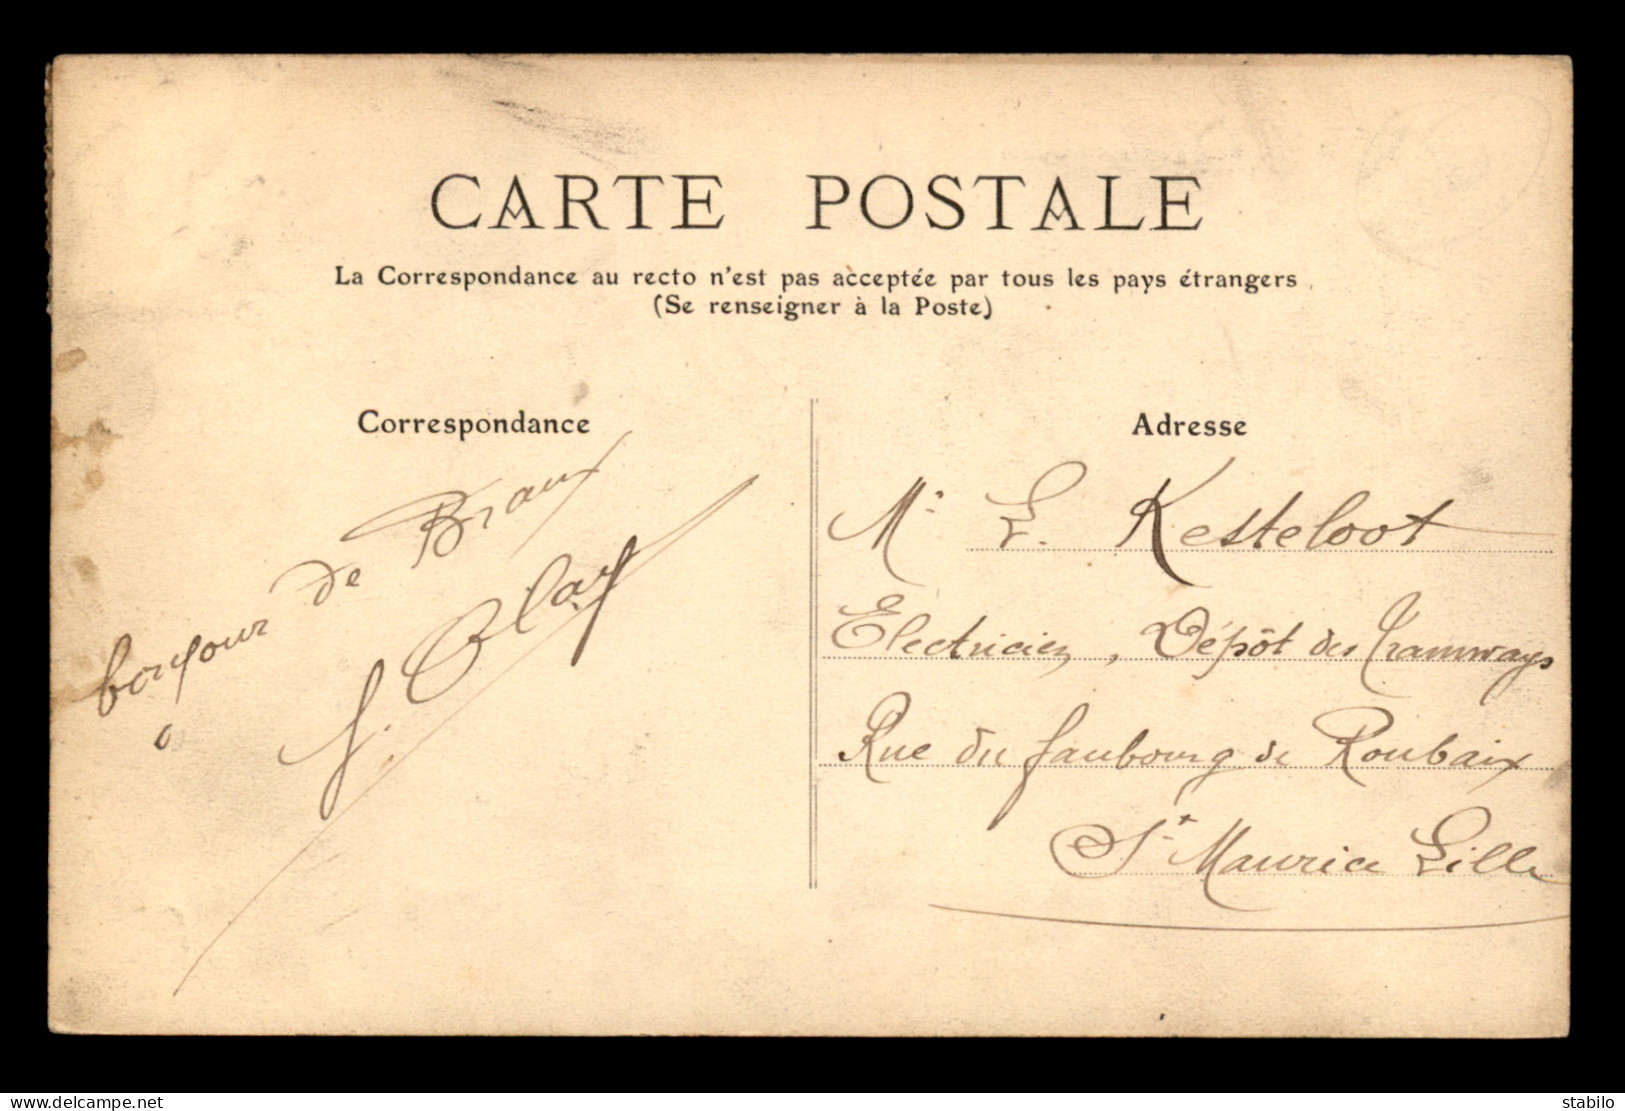 CARTE POSTALE
La Correspondance au recto n'est pas acceptée par tous les pays étrangers
(Se renseigner à la Poste)
Correspondance
bonjour de Braux
Adresse
Mr. E. Kesteloot
Electricien, Dépôt des Tramways
Rue du faubourg de Roubaix
St Maurice Lille
www.delcampe.net
stabilo